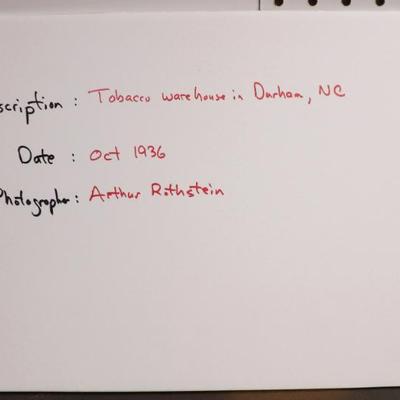 scription : Tobacco warehouse in Durham, NC
Date : Oct 1936
Photographer : Arthur Rothstein